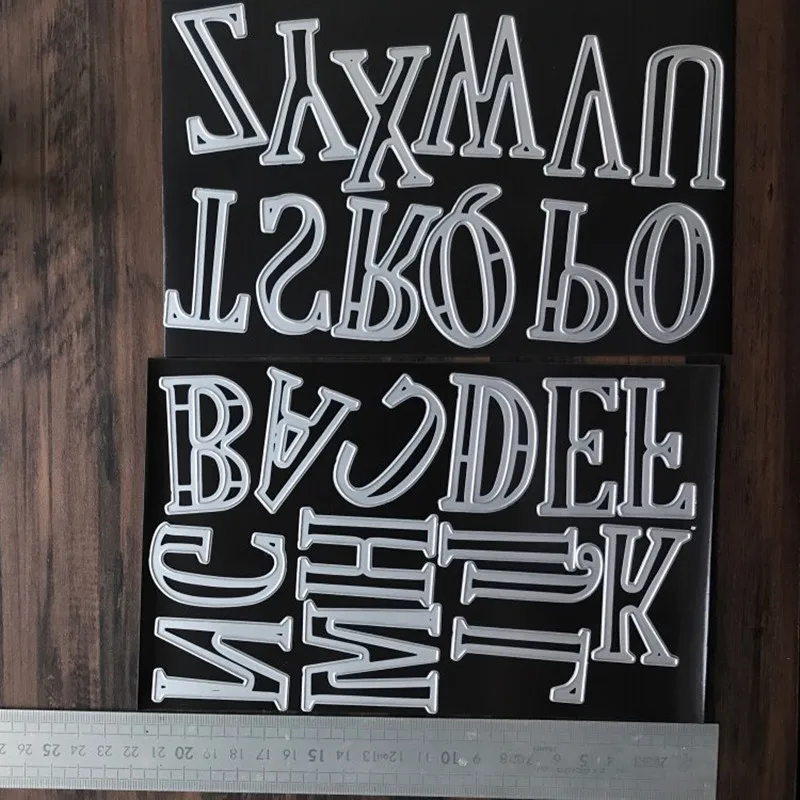 Z Y X W V U
T S R Q P O
B A C D E F
G H I J K
N M L
25 24 23 22 21 20 19 18 17 16 15 14 13 12 11 10 9 8 7 6 5 4 3 2